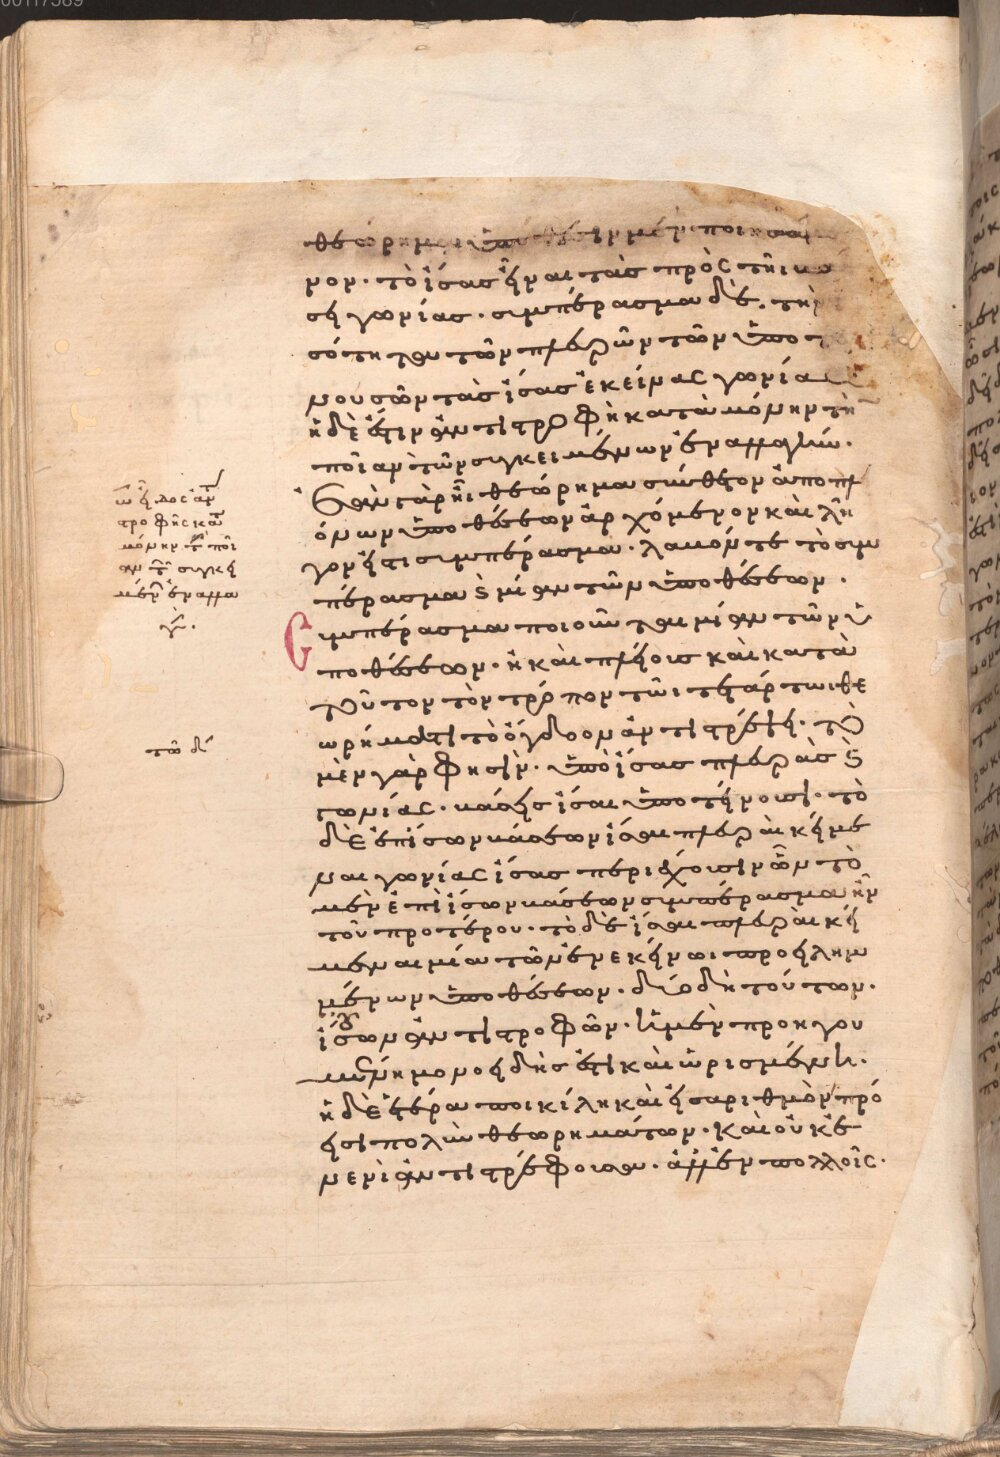 00117589
θεώρημα ὑπόθεσιν μὲν ποιησάμε
νον· τὸ ἴσας εἶναι τὰς πρὸς τῆι
σει γωνίας· συμπέρασμα δὲ. τὴν
σότητα τῶν πλευρῶν τῶν ὑπο
νουσῶν τὰς ἴσας ἐκείνας γωνίας
ἡ δὲ ἐστιν ἀντιστροφὴ κατὰ μόνην τὴν
ποιὰν τῶν συγκειμένων ἐναλλαγὴν.
ἐὰν γὰρ ἦι θεώρημα σύνθετον ἀπο πλει
όνων ὑποθέσεων ἀρχόμενον καὶ λῆ
γον εἴς τι συμπέρασμα· λαβόντες τὸ συμ
πέρασμα καὶ μίαν τῶν ὑποθέσεων.
συμπέρασμα ποιοῦνται μίαν τῶν ὑ
ποθέσεων· ἢ καὶ πλείους καὶ κατὰ
τοῦτον τὸν τρόπον τῶι τετάρτωι θε
ωρήματι τὸ ὄγδοον ἀντιστρέφει. τὸ
μὲν γάρ φησιν· ὑπὸ ἴσας πλευρὰς καὶ
γωνίας· βάσεις ἴσαι ὑποτείνουσι· τὸ
δὲ ἐπὶ ἴσων βάσεων ἴσαι πλευραὶ κείμε
ναι γωνίας ἴσας περιέχουσιν ὧν τὸ
μὲν ἐπὶ ἴσων βάσεων συμπέρασμα ἦν
τοῦ προτέρου· τὸ δὲ ἴσαι πλευραὶ κεί
μεναι μία τῶν ἐν ἐκείνωι προειλημ
μένων ὑποθέσεων. δύο δὴ τούτων.
οὐσῶν ἀντιστροφῶν. ἡ μὲν προηγου
μένη μονοειδής ἐστι καὶ ὡρισμένη.
ἡ δὲ ἑτέρα ποικίλη καὶ εἰς ἀριθμὸν πρό
εισι πολὺν θεωρημάτων. καὶ οὐχ ἓν
ἑνὶ ἀντιστρέφουσαν. ἀλλ' ἓν πολλοῖς.
τροφῆς κατὰ
μόνην τὴν ποι
ὰν τῶν συγκει
μένων ἐναλλα
γήν.